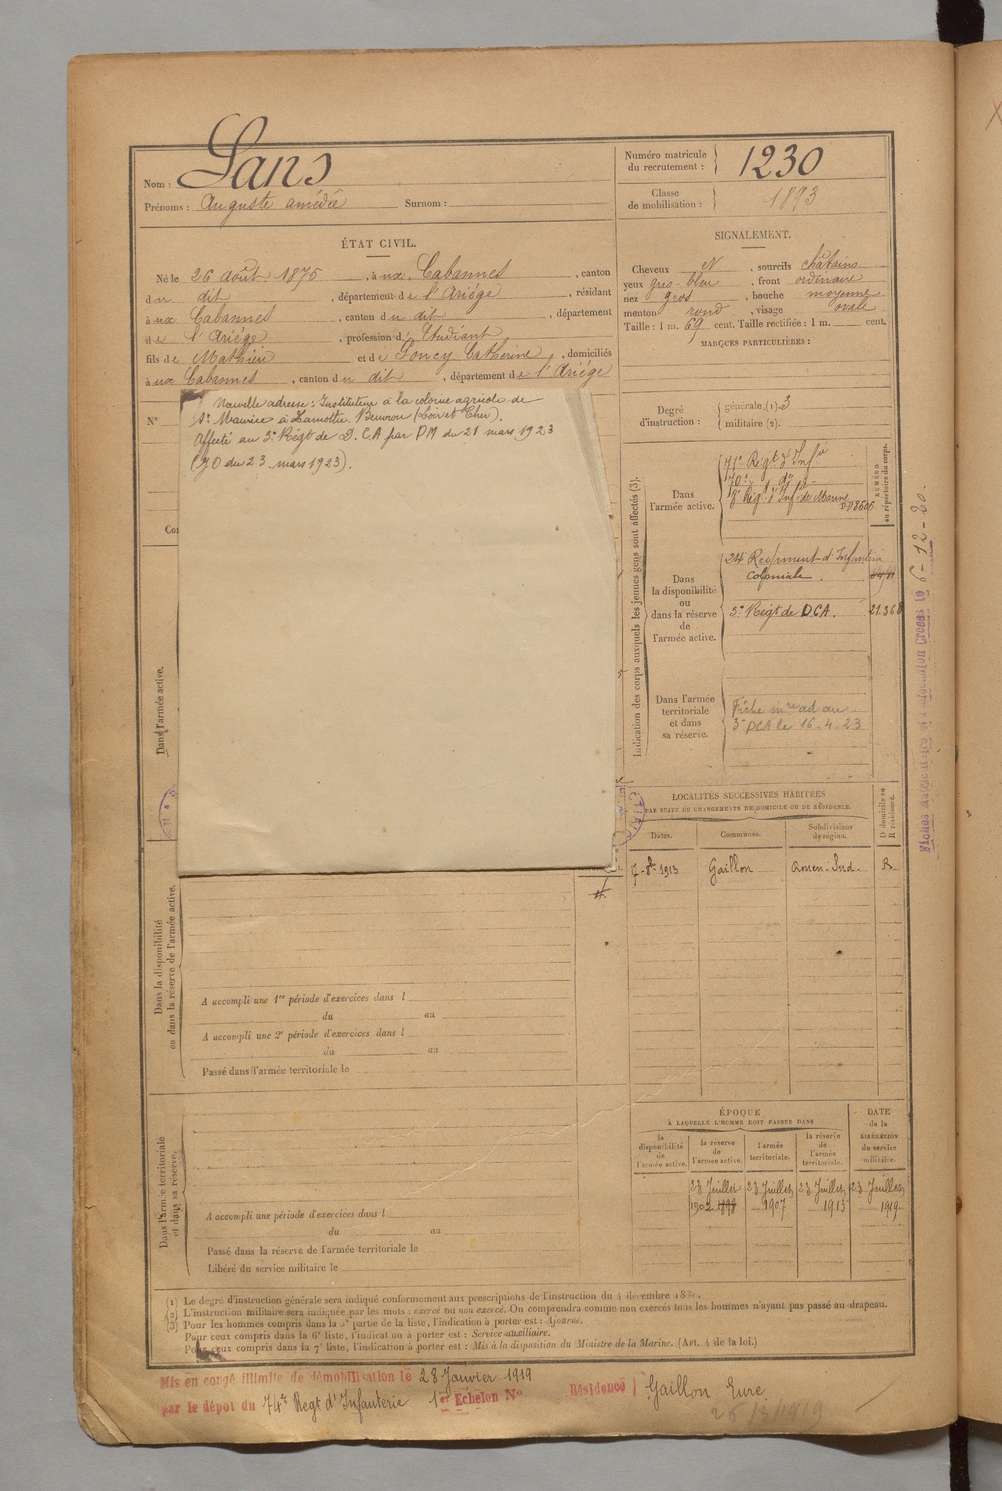 Nom : Sans
Prénoms : Auguste Amédée Surnom :
Numéro matricule du recrutement : 1230
Classe de mobilisation : 1893
ÉTAT CIVIL.
Né le 26 août 1875, à ux Cabannes, canton
du dit, département de l'Ariége, résidant
à ux Cabannes, canton du dit, département
de l'Ariége, profession d' Étudiant
fils de Mathieu et de Foncy Catherine, domiciliés
à ux Cabannes, canton du dit, département de l'Ariége
SIGNALEMENT.
Cheveux N, sourcils châtains
yeux gris bleu, front ordinaire
nez gros, bouche moyenne
menton rond, visage ovale
Taille : 1 m. 69 cent. Taille rectifiée : 1 m. cent.
MARQUES PARTICULIÈRES :
N°
Nouvelle adresse : Instituteur à la colonie agricole de
St Maurice à Lamotte Beuvron (Loir et Cher).
Affecté au 3e Régt de D.C.A par PM du 21 mars 1923
(JO du 23 mars 1923).
Degré d'instruction : générale (1) 3
militaire (2).
Indication des corps auxquels les jeunes gens sont affectés (3).
NUMÉRO au répertoire du corps.
Dans l'armée active.
Régt d'Infie
do
8e Régt d'Infie de Marine
8606
Dans la disponibilité ou dans la réserve de l'armée active.
24e Régiment d'Infanterie
Coloniale.
3e Régt de D.C.A. 21.368
Dans l'armée territoriale et dans sa réserve.
Fiche mle ad au
3e DCA le 16-4-23
6-12-20.
LOCALITÉS SUCCESSIVES HABITÉES
PAR SUITE DE CHANGEMENTS DE DOMICILE OU DE RÉSIDENCE.
Dates. Communes. Subdivisions de région. D domicile ou R résidence.
7-8bre 1913 Gaillon Rouen-Sud. R
Dans l'armée active.
Dans la disponibilité ou dans la réserve de l'armée active.
A accompli une 1re période d'exercices dans l
du au
A accompli une 2e période d'exercices dans l
du au
Passé dans l'armée territoriale le
Dans l'armée territoriale et dans sa réserve.
A accompli une période d'exercices dans l
du au
Passé dans la réserve de l'armée territoriale le
Libéré du service militaire le
ÉPOQUE
À LAQUELLE L'HOMME DOIT PASSER DANS
la disponibilité de l'armée active. la réserve de l'armée active. l'armée territoriale. la réserve de l'armée territoriale.
DATE de la LIBÉRATION du service militaire.
23 Juillet 23 Juillet 23 Juillet 23 Juillet
1902 1898 1907 1913 1919
(1) Le degré d'instruction générale sera indiqué conformément aux prescriptions de l'instruction du 4 décembre 1889.
(2) L'instruction militaire sera indiquée par les mots : exercé ou non exercé. On comprendra comme non exercés tous les hommes n'ayant pas passé au drapeau.
(3) Pour les hommes compris dans la 5e partie de la liste, l'indication à porter est : Ajourné.
Pour ceux compris dans la 6e liste, l'indication à porter est : Service auxiliaire.
Pour ceux compris dans la 7e liste, l'indication à porter est : Mis à la disposition du Ministre de la Marine. (Art. 4 de la loi.)
Mis en congé illimité de démobilisation le 28 Janvier 1919
par le dépot du 74e Régt d'Infanterie 1er Echelon No Résidence Gaillon Eure